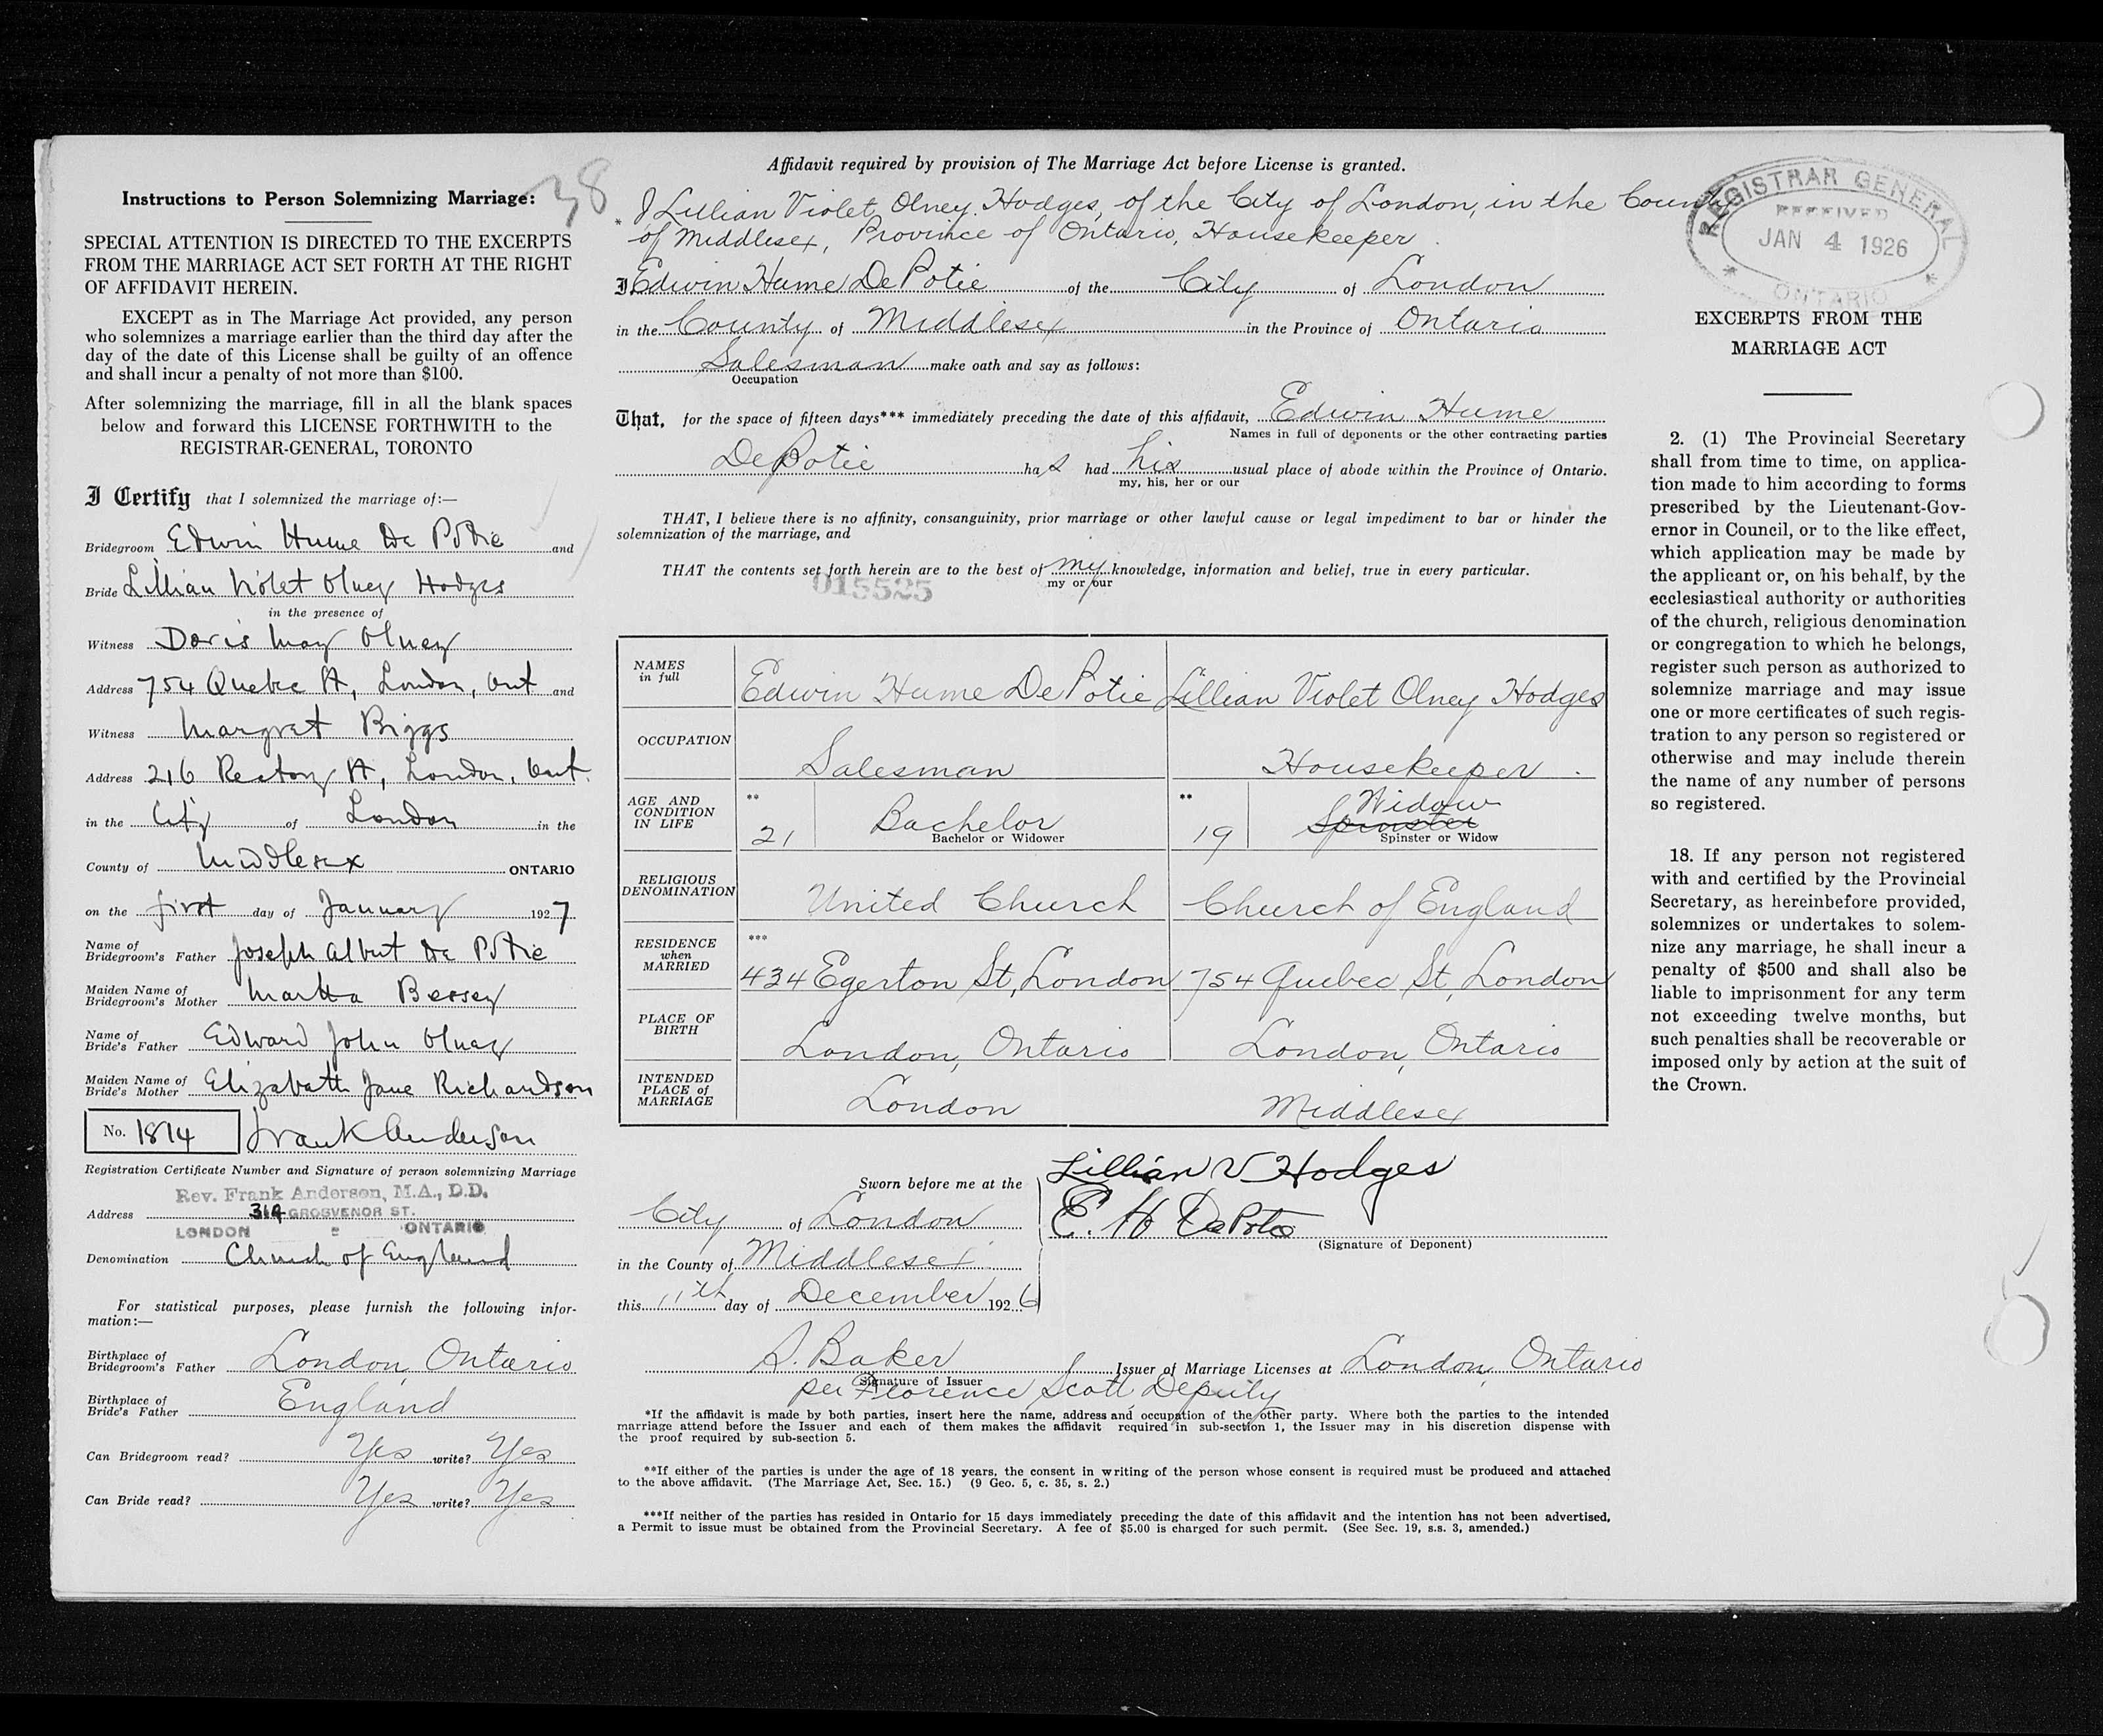 38
Instructions to Person Solemnizing Marriage:
SPECIAL ATTENTION IS DIRECTED TO THE EXCERPTS
FROM THE MARRIAGE ACT SET FORTH AT THE RIGHT
OF AFFIDAVIT HEREIN.
EXCEPT as in The Marriage Act provided, any person
who solemnizes a marriage earlier than the third day after the
day of the date of this License shall be guilty of an offence
and shall incur a penalty of not more than $100.
After solemnizing the marriage, fill in all the blank spaces
below and forward this LICENSE FORTHWITH to the
REGISTRAR-GENERAL, TORONTO
I Certify that I solemnized the marriage of:—
Bridegroom Edwin Hume De Potie and
Bride Lillian Violet Olney Hodges
in the presence of
Witness Doris May Olney
Address 754 Quebec St, London, Ont and
Witness Margret Biggs
Address 216 Rectory St, London, Ont.
in the City of London in the
County of Middlesex ONTARIO
on the first day of January 1927
Name of
Bridegroom's Father Joseph Albert De Potie
Maiden Name of
Bridegroom's Mother Martha Bessey
Name of
Bride's Father Edward John Olney
Maiden Name of
Bride's Mother Elizabeth Jane Richardson
No. 1814 Frank Anderson
Registration Certificate Number and Signature of person solemnizing Marriage
Rev. Frank Anderson, M.A., D.D.
Address 319 GROSVENOR ST.
LONDON - ONTARIO
Denomination Church of England
For statistical purposes, please furnish the following infor-
mation:—
Birthplace of
Bridegroom's Father London, Ontario
Birthplace of
Bride's Father England
Can Bridegroom read? Yes write? Yes
Can Bride read? Yes write? Yes
Affidavit required by provision of The Marriage Act before License is granted.
* I Lillian Violet Olney Hodges, of the City of London, in the County
of Middlesex, Province of Ontario, Housekeeper.
I Edwin Hume DePotie of the City of London
in the County of Middlesex in the Province of Ontario
Salesman make oath and say as follows:
Occupation
That, for the space of fifteen days*** immediately preceding the date of this affidavit, Edwin Hume
Names in full of deponents or the other contracting parties
DePotie has had his usual place of abode within the Province of Ontario.
my, his, her or our
THAT, I believe there is no affinity, consanguinity, prior marriage or other lawful cause or legal impediment to bar or hinder the
solemnization of the marriage, and
THAT the contents set forth herein are to the best of my knowledge, information and belief, true in every particular.
my or our
015525
NAMES
in full
Edwin Hume DePotie Lillian Violet Olney Hodges
OCCUPATION
Salesman Housekeeper.
AGE AND
CONDITION
IN LIFE
** 21 Bachelor
Bachelor or Widower
** 19 Widow
Spinster
Spinster or Widow
RELIGIOUS
DENOMINATION
United Church Church of England
RESIDENCE
when
MARRIED
***
434 Egerton St, London 754 Quebec St, London
PLACE OF
BIRTH
London, Ontario London, Ontario
INTENDED
PLACE of
MARRIAGE
London Middlesex
Lillian V Hodges
Sworn before me at the
E. H DePotie
City of London
(Signature of Deponent)
in the County of Middlesex
this 11th day of December 1926
S. Baker Issuer of Marriage Licenses at London, Ontario
Signature of Issuer
per Florence Scott Deputy
*If the affidavit is made by both parties, insert here the name, address and occupation of the other party. Where both the parties to the intended
marriage attend before the Issuer and each of them makes the affidavit required in sub-section 1, the Issuer may in his discretion dispense with
the proof required by sub-section 5.
**If either of the parties is under the age of 18 years, the consent in writing of the person whose consent is required must be produced and attached
to the above affidavit. (The Marriage Act, Sec. 15.) (9 Geo. 5, c. 35, s. 2.)
***If neither of the parties has resided in Ontario for 15 days immediately preceding the date of this affidavit and the intention has not been advertised,
a Permit to issue must be obtained from the Provincial Secretary. A fee of $5.00 is charged for such permit. (See Sec. 19, s.s. 3, amended.)
REGISTRAR GENERAL
RECEIVED
JAN 4 1926
ONTARIO
EXCERPTS FROM THE
MARRIAGE ACT
2. (1) The Provincial Secretary
shall from time to time, on applica-
tion made to him according to forms
prescribed by the Lieutenant-Gov-
ernor in Council, or to the like effect,
which application may be made by
the applicant or, on his behalf, by the
ecclesiastical authority or authorities
of the church, religious denomination
or congregation to which he belongs,
register such person as authorized to
solemnize marriage and may issue
one or more certificates of such regis-
tration to any person so registered or
otherwise and may include therein
the name of any number of persons
so registered.
18. If any person not registered
with and certified by the Provincial
Secretary, as hereinbefore provided,
solemnizes or undertakes to solem-
nize any marriage, he shall incur a
penalty of $500 and shall also be
liable to imprisonment for any term
not exceeding twelve months, but
such penalties shall be recoverable or
imposed only by action at the suit of
the Crown.